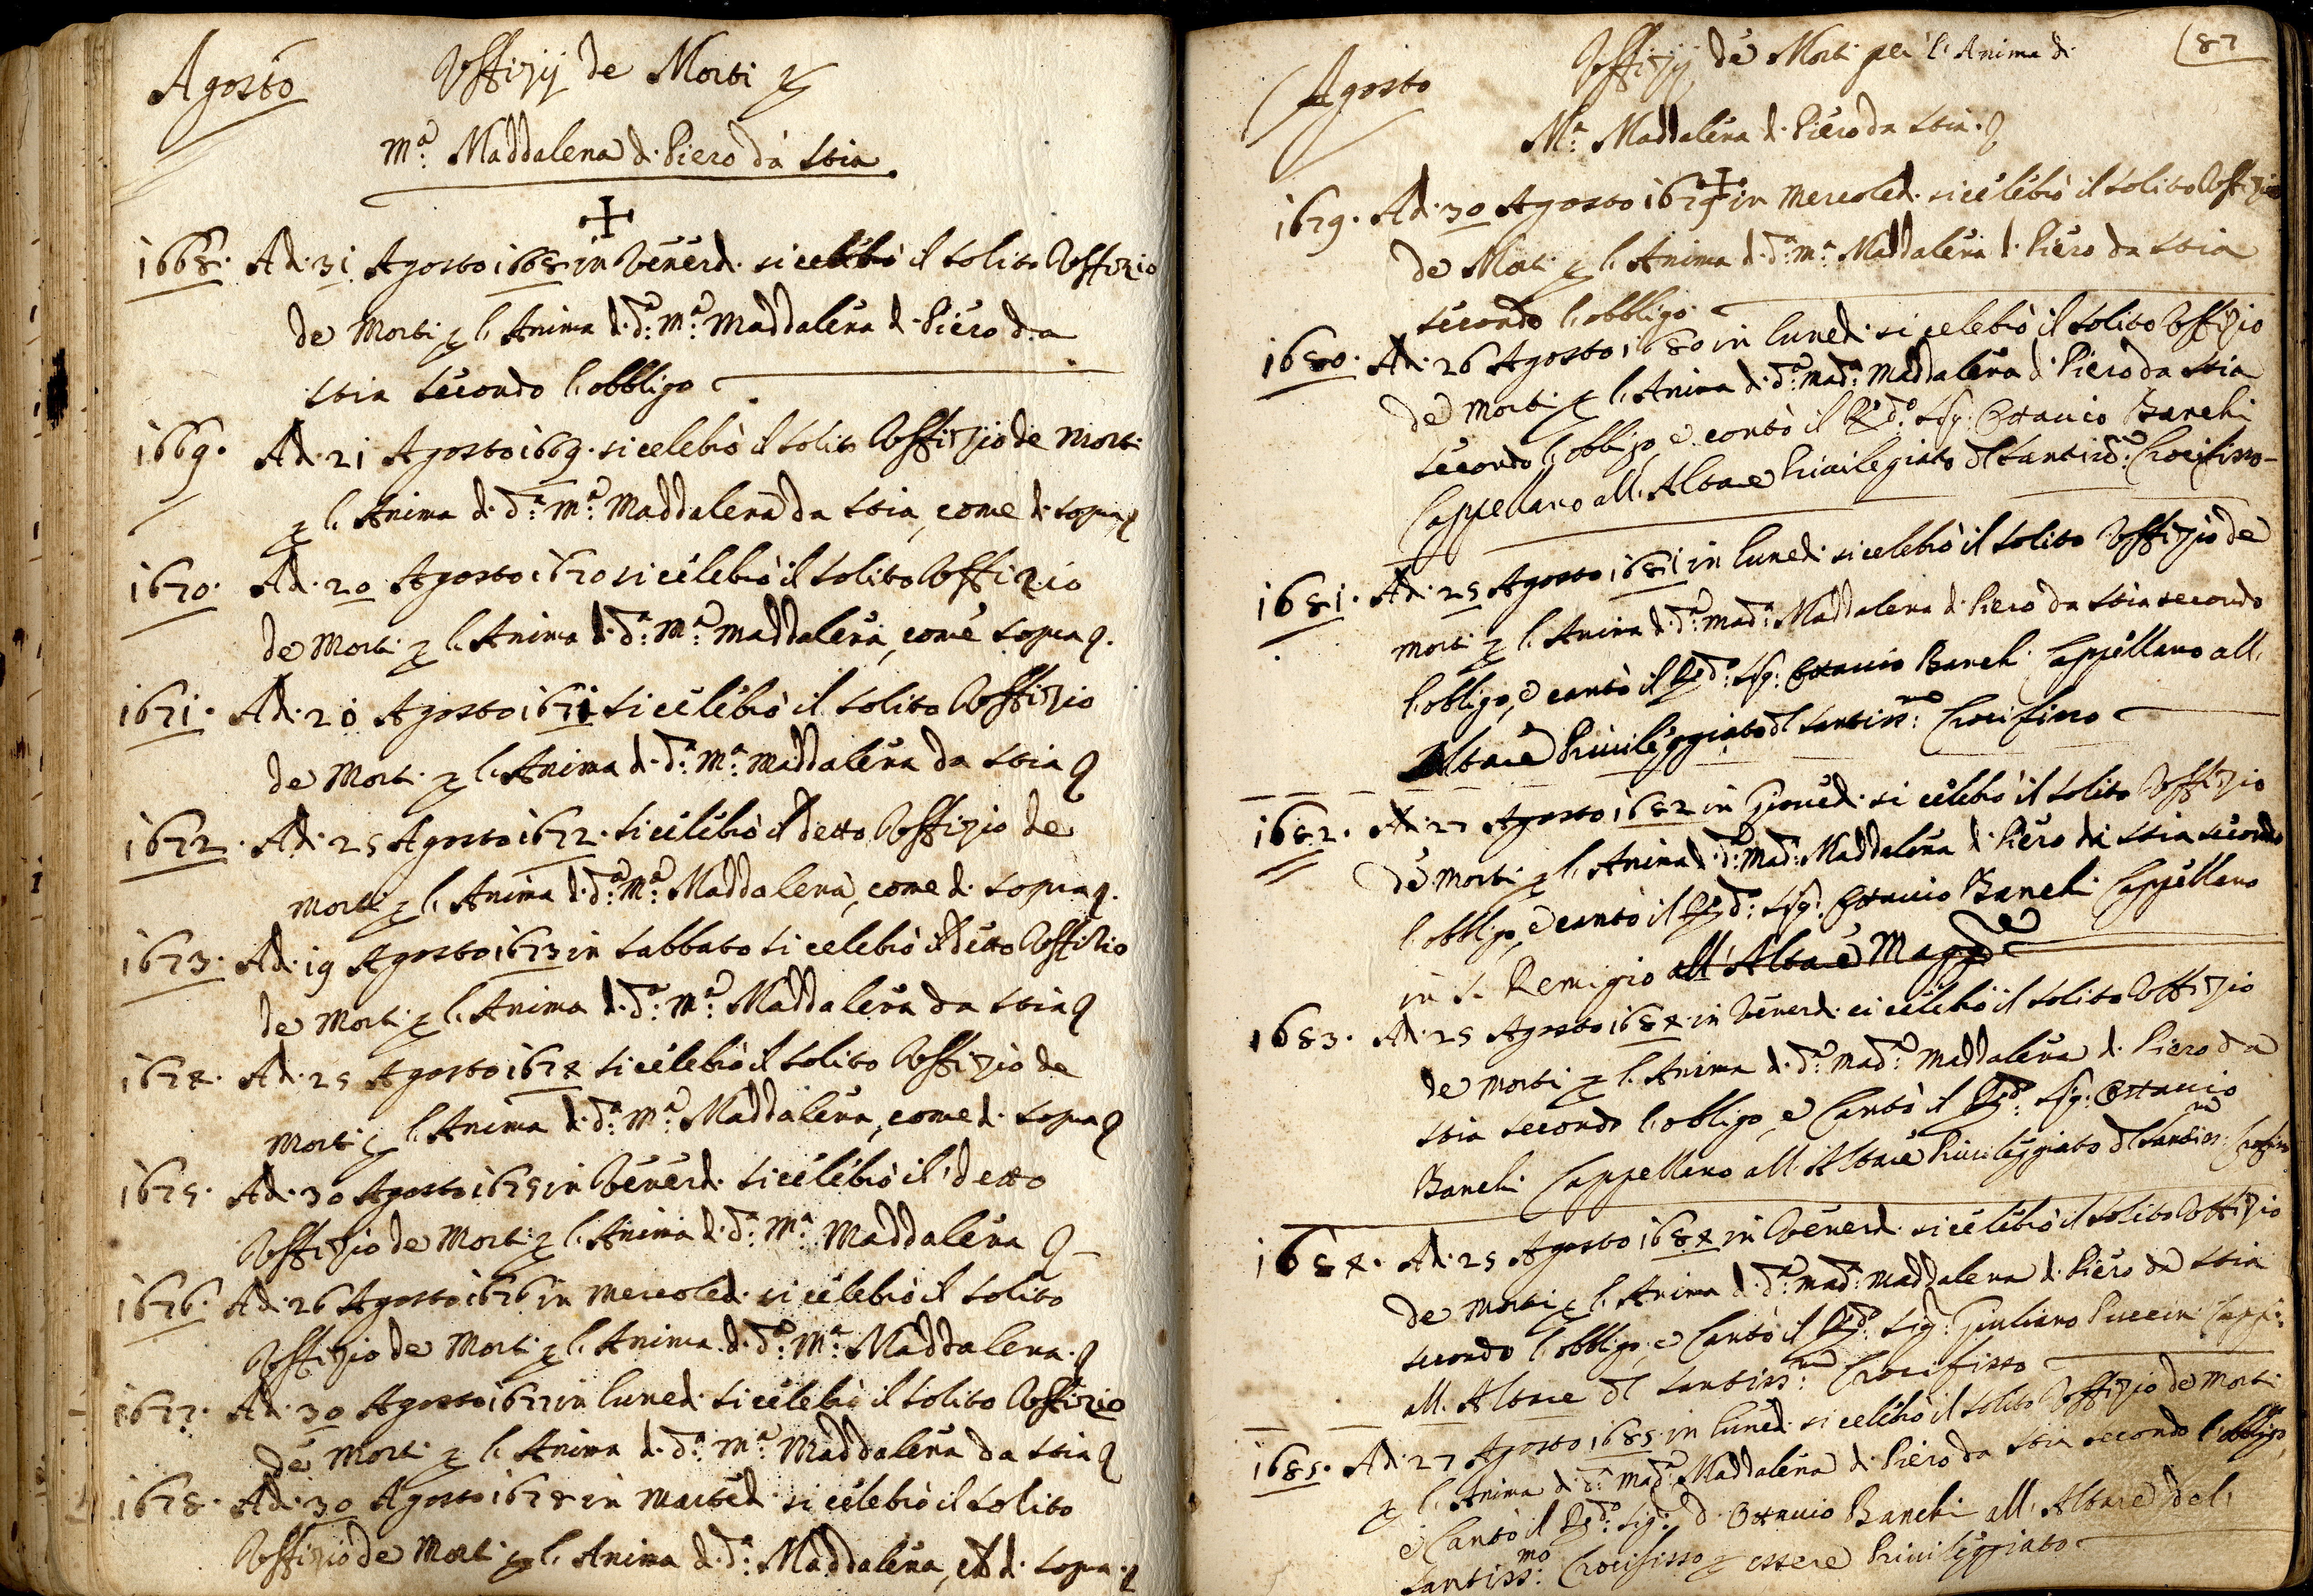 Agosto Uffizij de Morti p
Mª: Maddalena di Piero da Stia
1668. Adi 31 Agosto 1668 in Venerdi si celebrò il solito Uffizio
de Morti p l'Anima di dª: Mª: Maddalena di Piero da
Stia secondo l'obbligo
1669. Adi 21 Agosto 1669. si celebrò il solito Uffizio de Morti
p l'Anima di dª: Mª: Maddalena da Stia, come di sopra
1670. Adi 20 Agosto 1670 si celebrò il solito Uffizio
de Morti p l'Anima di dª: Mª: Maddalena, come sopra
1671. Adi 20 Agosto 1671 si celebrò il solito Uffizio
de Morti p l'Anima di dª: Mª: Maddalena da Stia
1672. Adi 25 Agosto 1672. si celebrò il detto Uffizio de
Morti p l'Anima di dª: Mª: Maddalena, come di sopra
1673. Adi 19 Agosto 1673 in Sabbato si celebrò il detto Uffizio
de Morti p l'Anima di dª: Mª: Maddalena da Stia
1674. Adi 25 Agosto 1674 si celebrò il solito Uffizio de
Morti p l'Anima di dª: Mª: Maddalena, come di sopra
1675. Adi 30 Agosto 1675 in Venerdi si celebrò il detto
Uffizio de Morti p l'Anima di dª: Mª: Maddalena
1676. Adi 26 Agosto 1676 in Mercoledi si celebrò il solito
Uffizio de Morti p l'Anima di dª: Mª: Maddalena
1677. Adi 30 Agosto 1677 in lunedi si celebrò il solito Uffizio
de Morti p l'Anima di dª: Mª: Maddalena da Stia
1678. Adi 30 Agosto 1678 in Martedi si celebrò il solito
Uffizio de Morti p l'Anima di dª: Maddalena, di sopra
Agosto Uffizij de Morti per l'Anima di 87
Mª: Maddalena di Piero da Stia
1679. Adi 30 Agosto 1679 in Mercoledi si celebrò il solito Uffizio
de Morti p l'Anima di dª: Mª: Maddalena di Piero da Stia
secondo l'obbligo
1680. Adi 26 Agosto 1680 in lunedi si celebrò il solito Uffizio
de Morti p l'Anima di dª: Madª: Maddalena di Piero da Stia
secondo l'obbligo, e cantò il Rdo: Sig: Ottavio Banchi
Cappellano all'Altare Privilegiato del Santissmo: Crocifisso
1681. Adi 25 Agosto 1681 in lunedi si celebrò il solito Uffizio de
Morti p l'Anima di dª: Madª: Maddalena di Piero da Stia secondo
l'obligo, e cantò il Rdo: Sig: Ottavio Banchi Cappellano all'
Altare Privileggiato del Santissmo: Crocifisso
1682. Adi 27 Agosto 1682 in Giovedi si celebrò il solito Uffizio
de Morti p l'Anima di dª: Madª: Maddalena di Piero da Stia secondo
l'obbligo, e cantò il Rdo: Sig: Ottavio Banchi Cappellano
in S. Remigio all'Altare Magge
1683. Adi 25 Agosto 1684 in Venerdi si celebrò il solito Uffizio
de Morti p l'Anima di dª: Madª: Maddalena di Piero da
Stia secondo l'obligo, e Cantò il Rdo: Sig: Ottavio
Banchi Cappellano all'Altare Privileggiato del Santissmo: Crocifisso
1684. Adi 25 Agosto 1684 in Venerdi si celebrò il solito Uffizio
de Morti p l'Anima di dª: Madª: Maddalena di Piero da Stia
secondo l'obbligo, e Cantò il Rdo: Sig: Giuliano Puccini Capp:
all'Altare del Santissmo: Crocifisso
1685. Adi 27 Agosto 1685 in lunedi si celebrò il solito Uffizio de Morti
p l'Anima di dª: Madª: Maddalena di Piero da Stia secondo l'obbligo,
e Cantò il Rdo: Sig: d. Ottavio Banchi all'Altare del
Santissmo: Crocifisso p essere Privileggiato